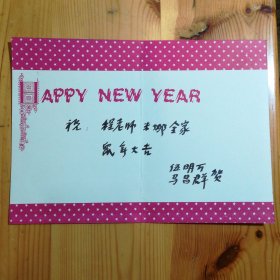 HAPPY NEW YEAR
祝：程老师 李娜全家
鼠年大吉
伍明万
马昌群 贺